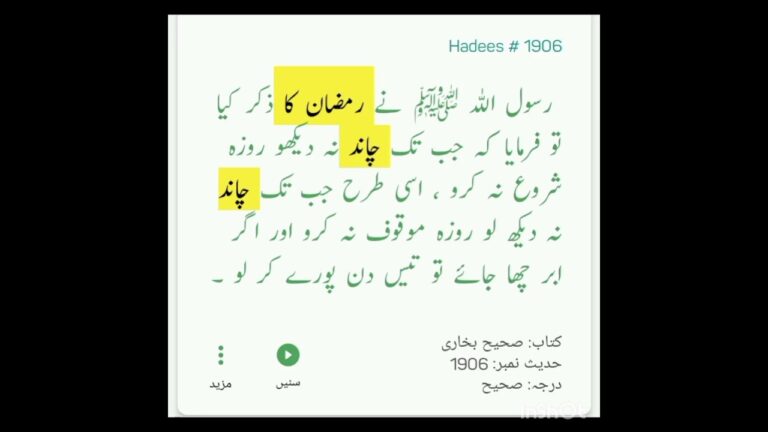 Hadees # 1906
رسول اللہ ﷺ نے رمضان کا ذکر کیا
تو فرمایا کہ جب تک چاند نہ دیکھو روزہ
شروع نہ کرو ، اسی طرح جب تک چاند
نہ دیکھ لو روزہ موقوف نہ کرو اور اگر
ابر چھا جائے تو تیس دن پورے کر لو ۔
کتاب: صحیح بخاری
حدیث نمبر: 1906
درجہ: صحیح
سنیں
مزید